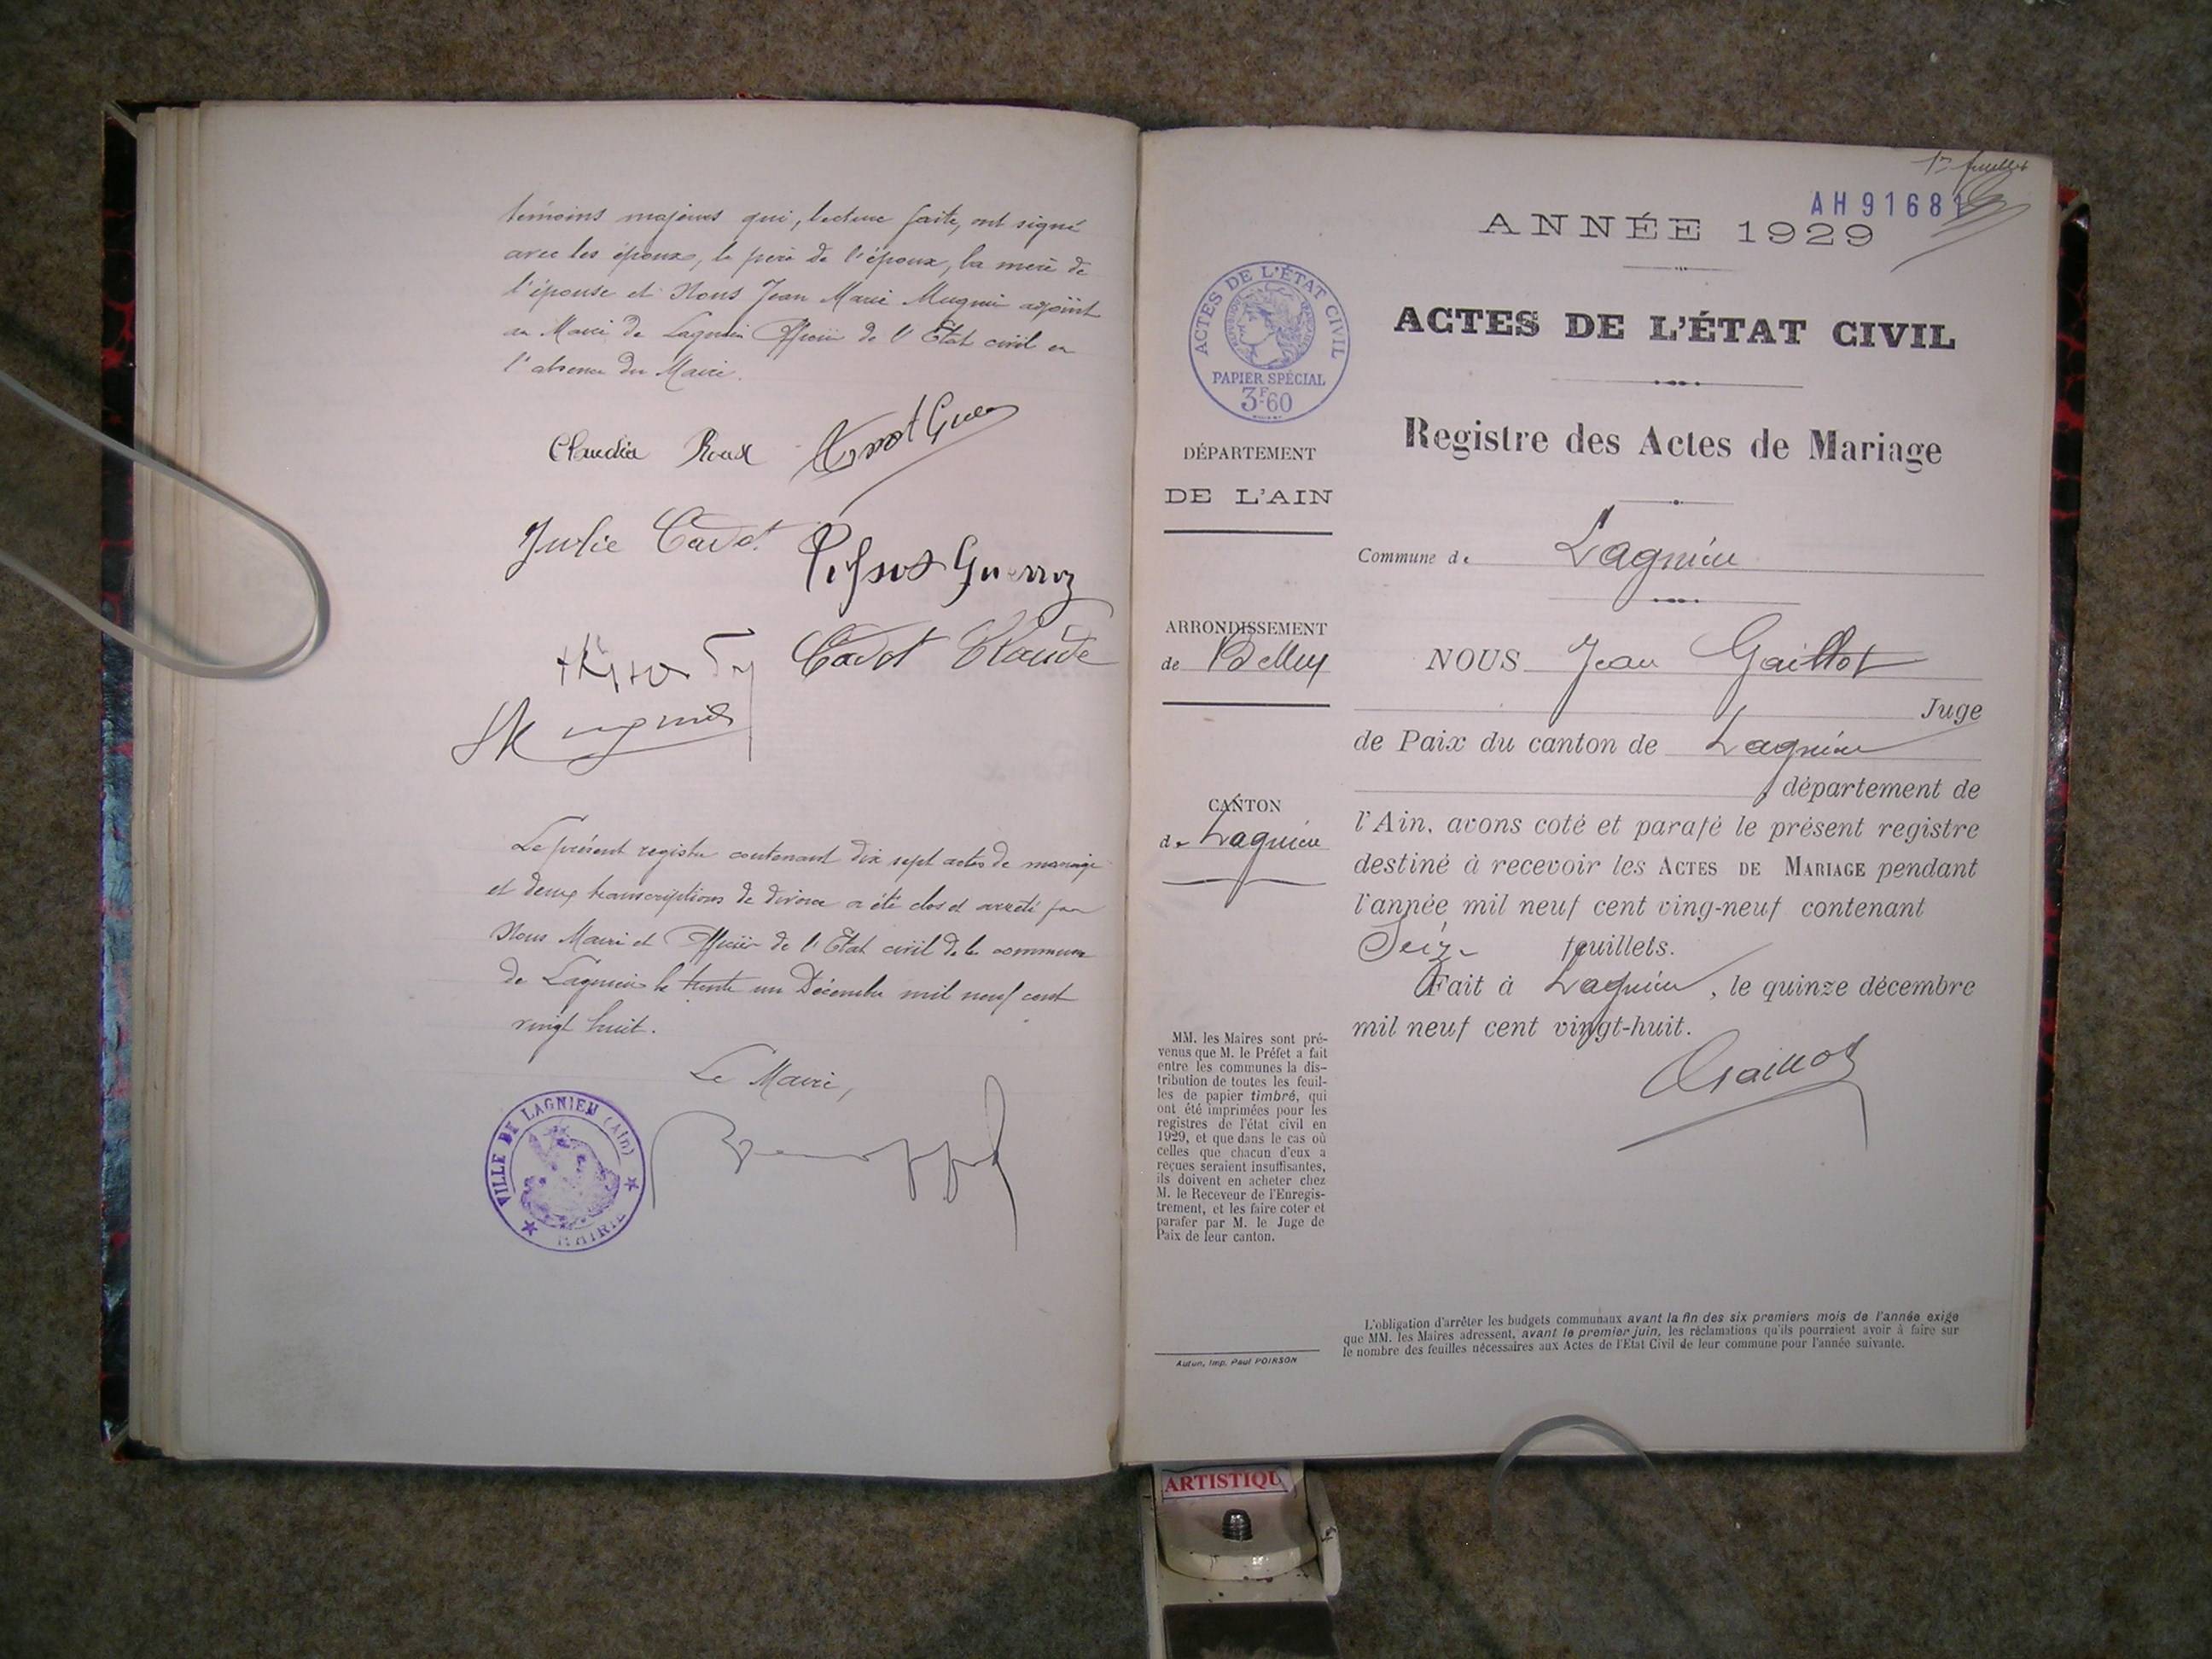 témoins majeurs qui, lecture faite, ont signé
avec les époux, le père de l'époux, la mère de
l'épouse et Nous Jean Marie Mugnier adjoint
au Maire de Lagnieu Officier de l'Etat civil en
l'absence du Maire.
Claudia Roux
Julie Cadot
Cadot Claude
Le présent registre contenant dix sept actes de mariage
et deux transcriptions de divorce a été clos et arrêté par
Nous Maire et Officier de l'Etat civil de la commune
de Lagnieu le trente un Décembre mil neuf cent
vingt huit.
Le Maire,
VILLE DE LAGNIEU (Ain)
MAIRIE
1er feuillet
AH 91681
ANNÉE 1929
ACTES DE L'ÉTAT CIVIL
PAPIER SPÉCIAL
3F60
ACTES DE L'ÉTAT CIVIL
Registre des Actes de Mariage
DÉPARTEMENT
DE L'AIN
Commune de Lagnieu
ARRONDISSEMENT
de Belley
CANTON
de Lagnieu
NOUS Jean Gaillot
Juge
de Paix du canton de Lagnieu
département de
l'Ain, avons coté et parafé le présent registre
destiné à recevoir les ACTES DE MARIAGE pendant
l'année mil neuf cent ving-neuf contenant
Seize feuillets.
Fait à Lagnieu, le quinze décembre
mil neuf cent vingt-huit.
Gaillot
MM. les Maires sont pré-
venus que M. le Préfet a fait
entre les communes la dis-
tribution de toutes les feuil-
les de papier timbré, qui
ont été imprimées pour les
registres de l'état civil en
1929, et que dans le cas où
celles que chacun d'eux a
reçues seraient insuffisantes,
ils doivent en acheter chez
M. le Receveur de l'Enregis-
trement, et les faire coter et
parafer par M. le Juge de
Paix de leur canton.
Autun, Imp. Paul POIRSON
L'obligation d'arrêter les budgets communaux avant la fin des six premiers mois de l'année exige
que MM. les Maires adressent, avant le premier juin, les réclamations qu'ils pourraient avoir à faire sur
le nombre des feuilles nécessaires aux Actes de l'Etat Civil de leur commune pour l'année suivante.
ARTISTIQU